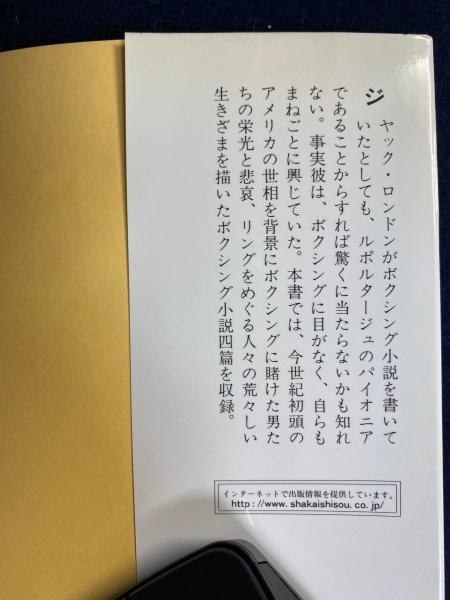 ジャック・ロンドンがボクシング小説を書いて
いたとしても、ルポルタージュのパイオニア
であることからすれば驚くに当たらないかも知れ
ない。事実彼は、ボクシングに目がなく、自らも
まねごとに興じていた。本書では、今世紀初頭の
アメリカの世相を背景にボクシングに賭けた男た
ちの栄光と悲哀、リングをめぐる人々の荒々しい
生きざまを描いたボクシング小説四篇を収録。
インターネットで出版情報を提供しています。
http://www.shakaishisou.co.jp/